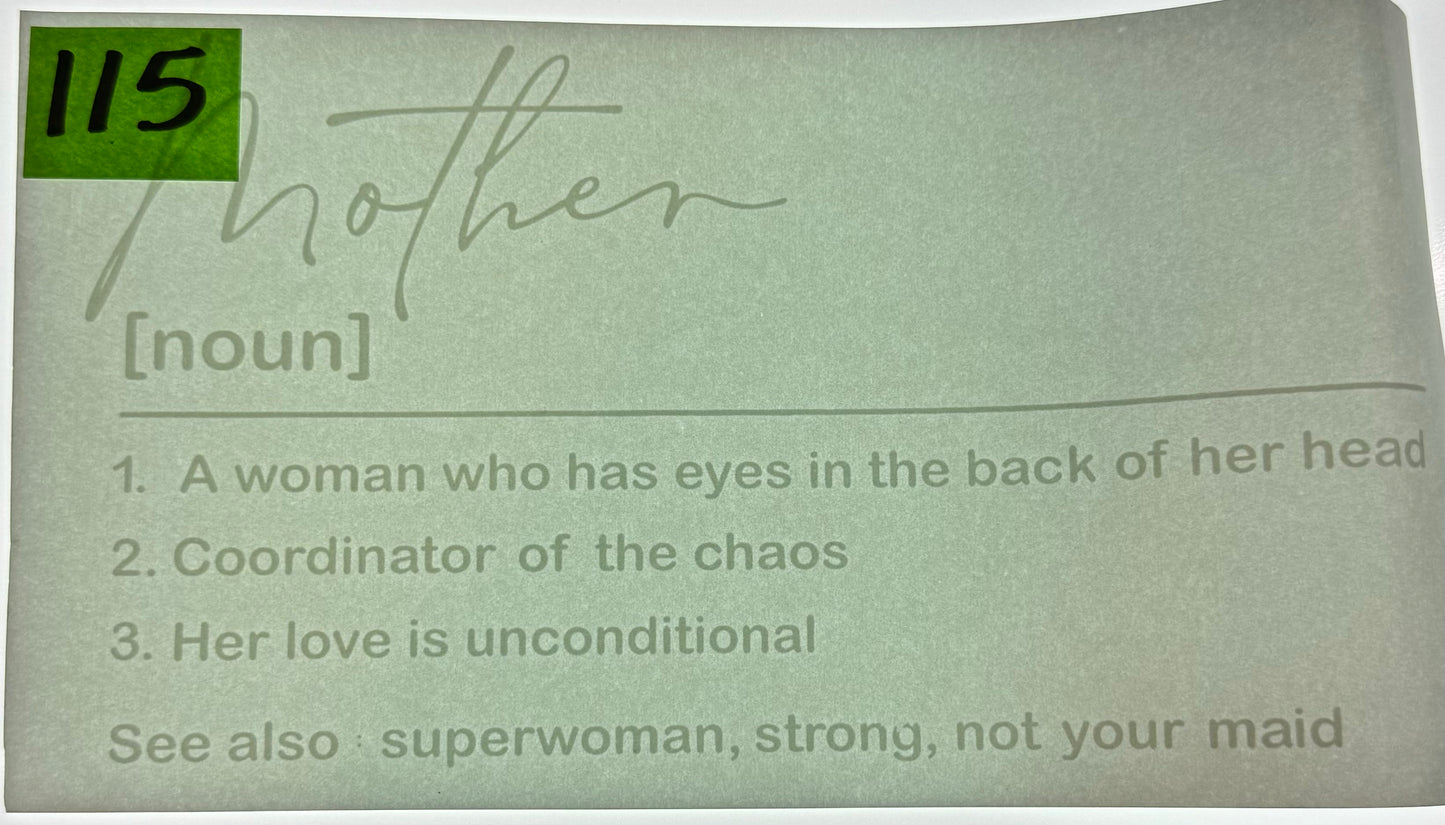 115
Mother
[noun]
1. A woman who has eyes in the back of her head
2. Coordinator of the chaos
3. Her love is unconditional
See also : superwoman, strong, not your maid